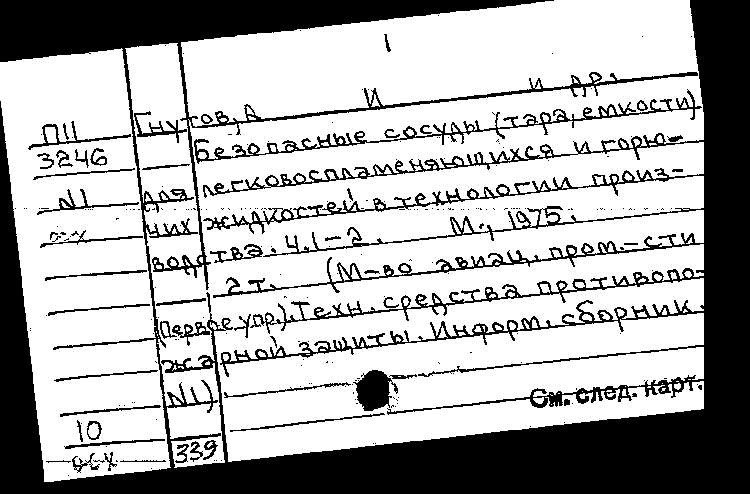 1
Гнутов, А И и др.
П11
3246
Безопасные сосуды (тара, емкости)
№1
для легковоспламеняющихся и горю-
чих жидкостей в технологии произ-
водства. Ч. 1-2. М., 1975.
2 т. (М-во авиац. пром.-сти
(Первое упр.). Техн. средства противопо-
жарной защиты. Информ. сборник.
№1).
См. след. карт.
10
осх
339